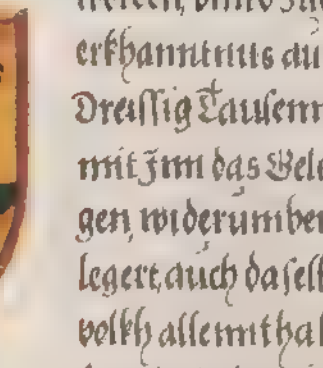 erkhanntnus du
Dreissig Tausenn
mit Inn das Gele
gen, widerumben
legert, auch dasel
volkh allennthal